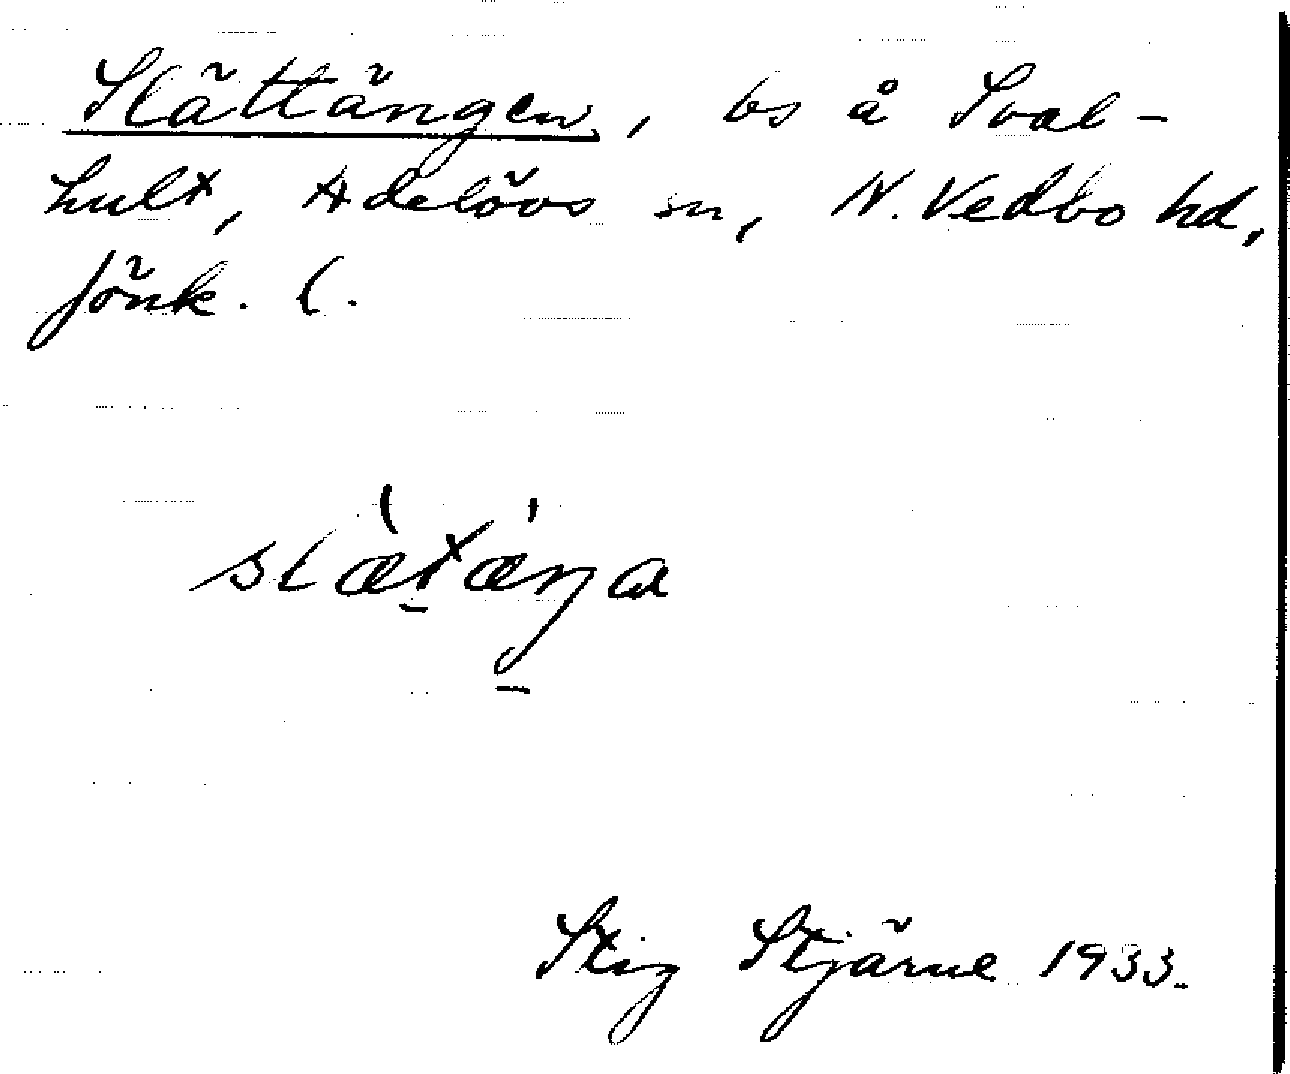 Slättängen, bs å Sval-
hult, Adelövs sn, N. Vedbo hd,
Jönk. l.
slæ̀tæ̀ŋa
Stig Stjärne 1933.